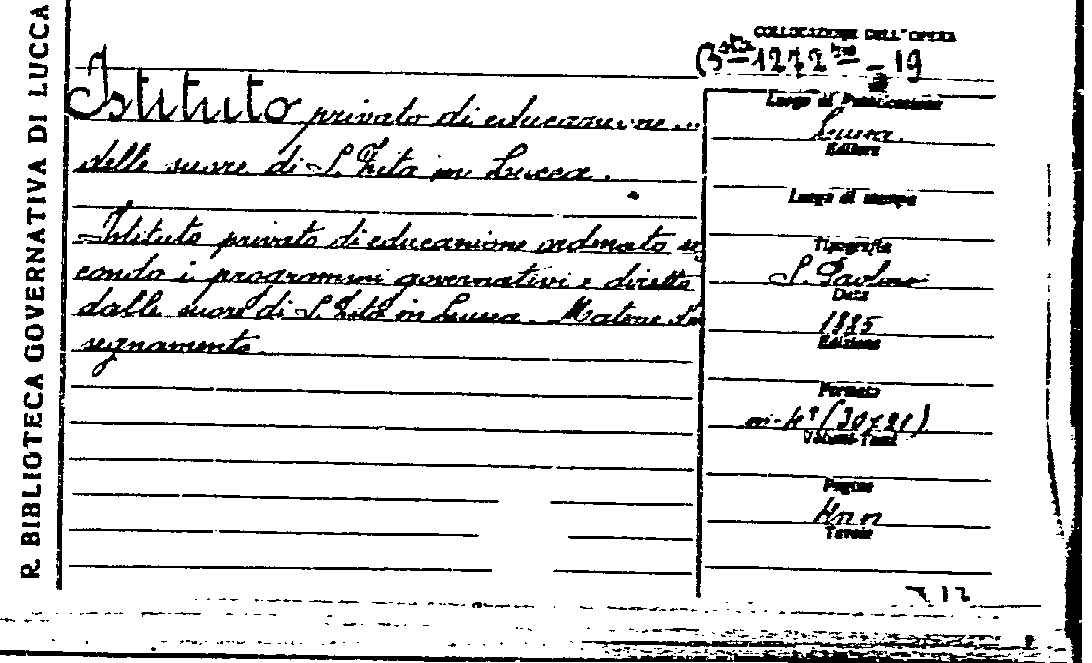 R. BIBLIOTECA GOVERNATIVA DI LUCCA
COLLOCAZIONE DELL'OPERA
Bsta 1272 - 19
Istituto privato di educazione ...
delle suore di S. Zita in Lucca.
Istituto privato di educazione ordinato se
condo i programmi governativi e diretto
dalle suore di S. Zita in Lucca
segnamento
Luogo di Pubblicazione
Lucca.
Editore
Luogo di stampa
Tipografia
S. Paolino
Data
1885
Edizione
Formato
in-4° (30x21)
Volumi-Tomi
Pagine
4 n n
Tavole